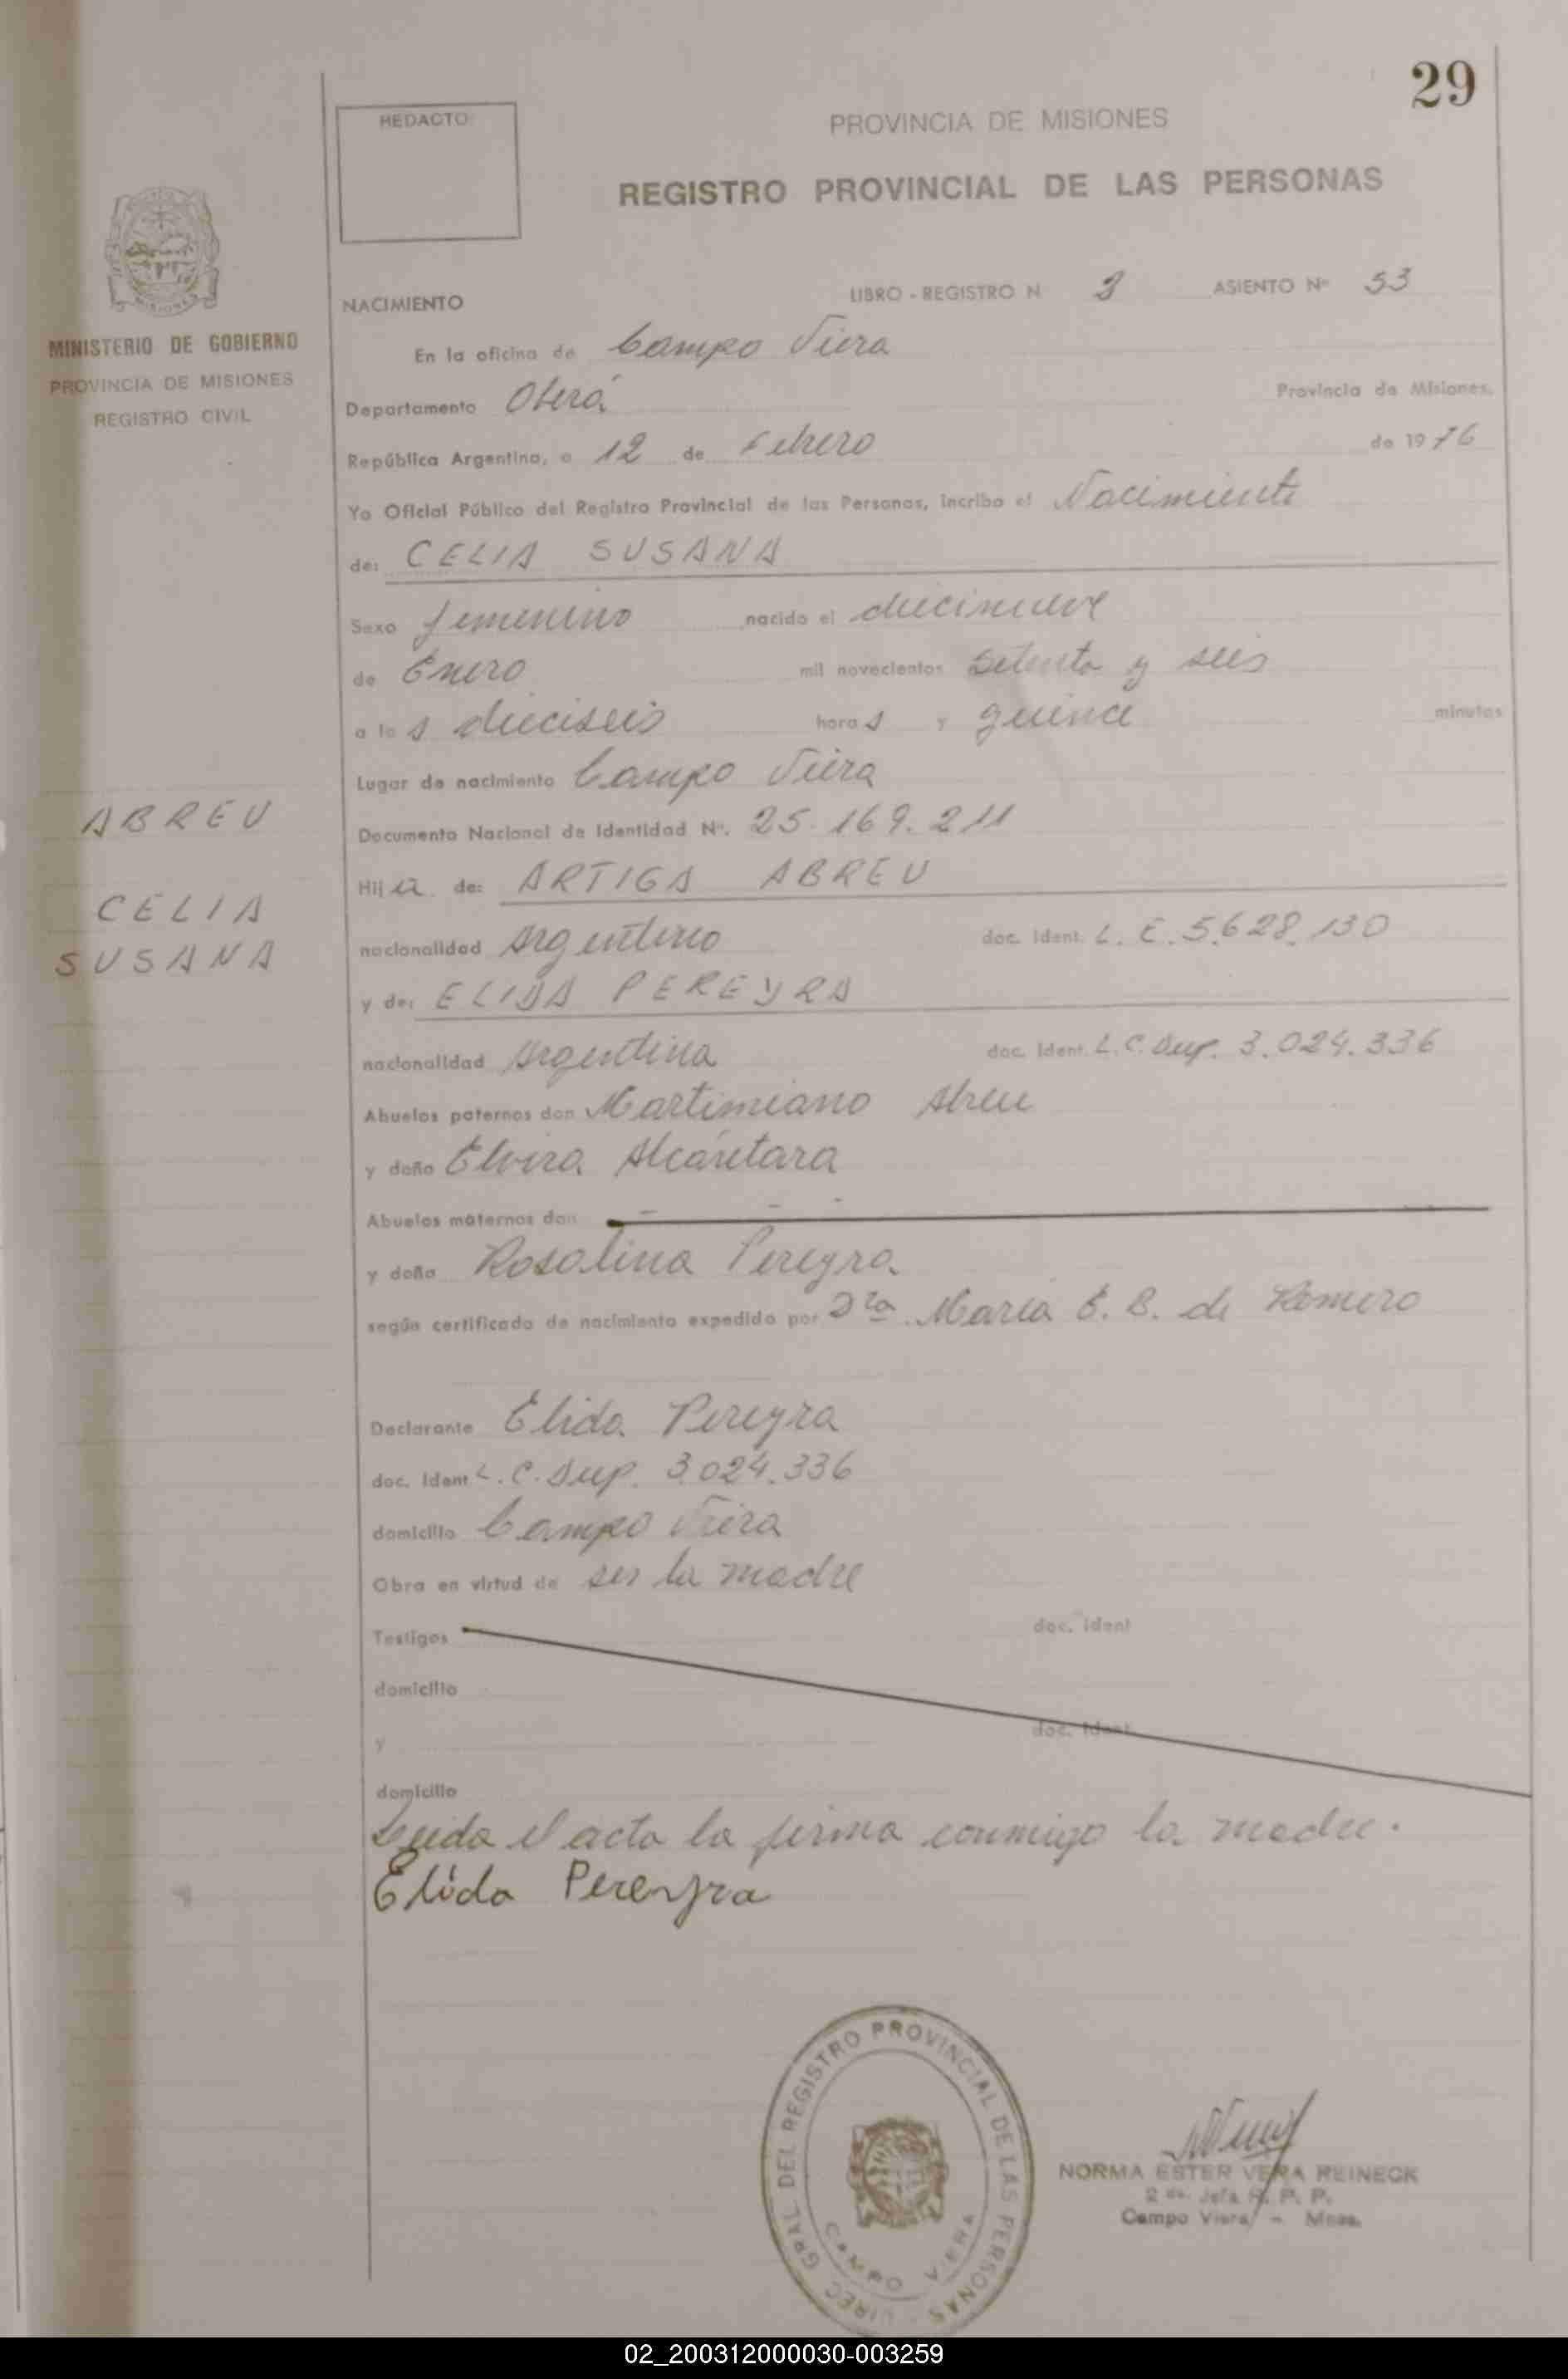 29
REDACTO
PROVINCIA DE MISIONES
REGISTRO PROVINCIAL DE LAS PERSONAS
MINISTERIO DE GOBIERNO
PROVINCIA DE MISIONES
REGISTRO CIVIL
NACIMIENTO LIBRO - REGISTRO N 3 ASIENTO Nº 53
En la oficina de Campo Viera
Departamento Oberá Provincia de Misiones,
República Argentina, a 12 de Febrero de 1976
Yo Oficial Público del Registro Provincial de las Personas, incribo el Nacimiento
de: CELIA SUSANA
Sexo femenino nacido el diecinueve
de Enero mil novecientos setenta y seis
a las dieciseis horas y quince minutos
Lugar de nacimiento Campo Viera
ABREU
CELIA
SUSANA
Documento Nacional de Identidad Nº. 25.169.211
Hija de: ARTIGA ABREU
nacionalidad Argentino doc. Ident. L. E. 5.628.130
y de: ELIDA PEREYRA
nacionalidad Argentina doc. Ident. L. C. Dup. 3.024.336
Abuelos paternos don Martimiano Abreu
y doña Elvira Alcántara
Abuelos maternos don
y doña Rosalina Pereyra
según certificado de nacimiento expedido por Dra. María E. B. de Romero
Declarante Elida Pereyra
doc. Ident L. C. Dup. 3.024.336
domicilio Campo Viera
Obra en virtud de ser la madre
Testigos doc. Ident
domicilio
y doc. Ident.
domicilio
Leida el acta la firma conmigo la madre.
Elida Pereyra
DIREC. GRAL DEL REGISTRO PROVINCIAL DE LAS PERSONAS
CAMPO VIERA
NORMA ESTER VERA REINECK
2 da. Jefa R. P. P.
Campo Viera - Mnes.
02_200312000030-003259